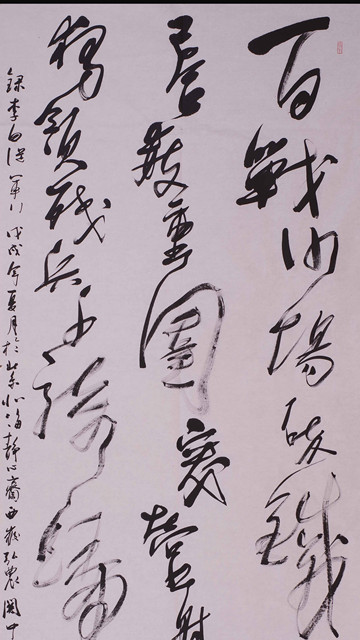 百戰沙場碎鐵
已合數重圍突營射
獨領殘兵千騎歸
錄李白從軍行戊戌年夏月於北海靜心齋西弘農